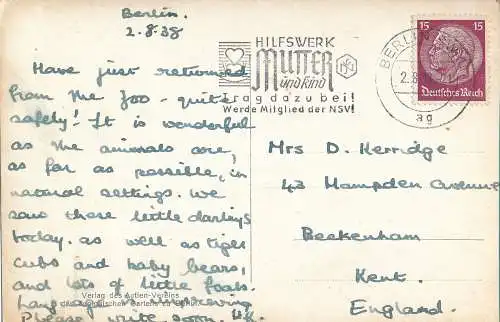 Berlin.
2.8.38
Have just returned
from the Zoo - quite
safely! It is wonderful
as the animals are,
as far as possible, in
natural settings. We
saw these little darlings
today. as well as tiger
cubs and baby bears,
and lots of little foals.
Language is improving
Please write soon.
Verlag des Aktien-Vereins
des Zoologischen Gartens zu Berlin
HILFSWERK
MUTTER
und Kind
Trag dazu bei!
Werde Mitglied der NSV!
BERLIN
2.8.
ag
15 15
Deutsches Reich
Mrs D. Herridge
43 Hampden Avenue
Beckenham
Kent.
England.